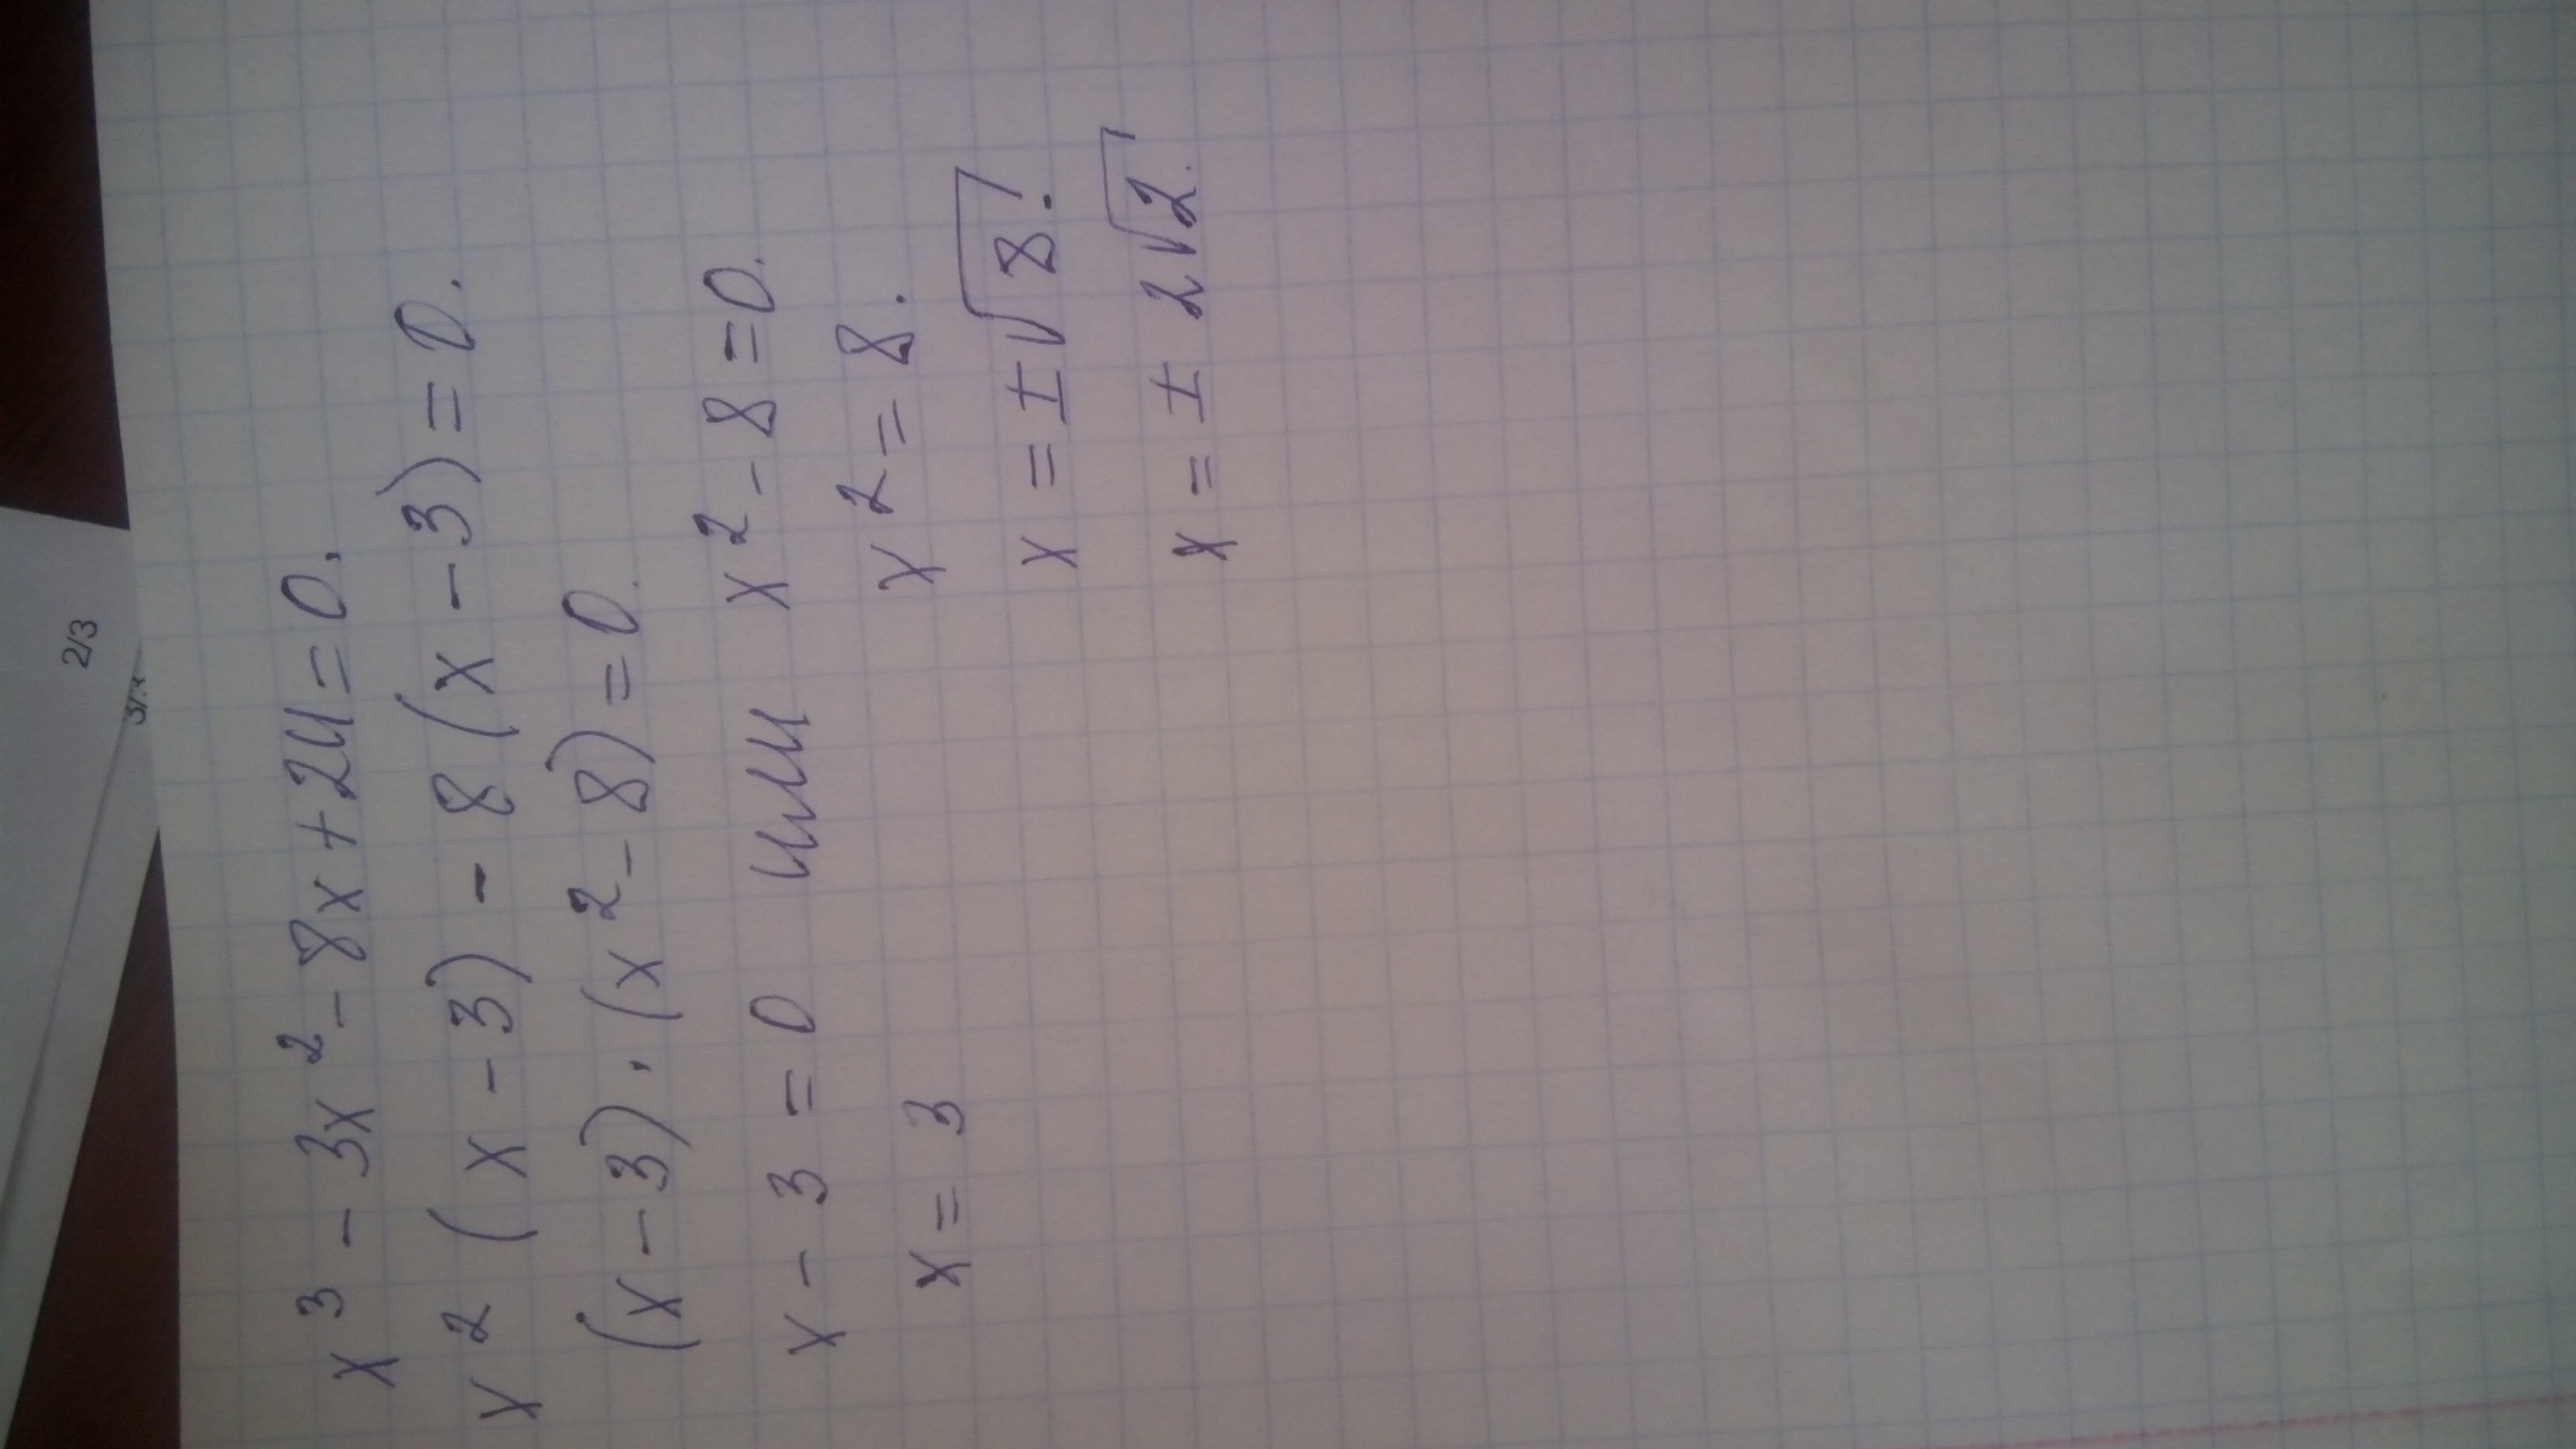 x³ - 3x² - 8x + 24 = 0.
x² (x - 3) - 8 (x - 3) = 0.
(x - 3) · (x² - 8) = 0.
x - 3 = 0 или x² - 8 = 0.
x = 3 x² = 8.
x = ±√8.
x = ± 2√2.
2/3